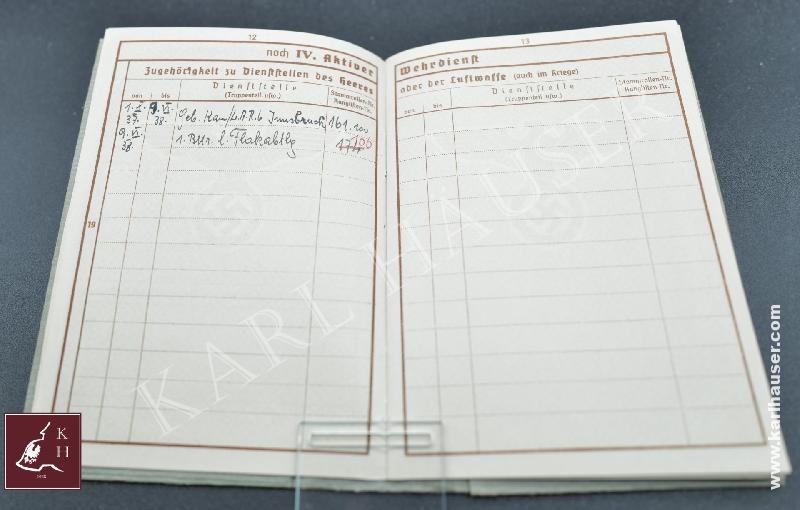 12
noch IV. Aktiver
Zugehörigkeit zu Dienststellen des Heeres
von bis
Dienststelle
(Truppenteil usw.)
Stammrollen-Nr.
Ranglisten-Nr.
1. X. 9. VI.
37. 38.
Innsbruck 161.
9. VI.
38.
1. Bttr. l. Flakabtlg
174 106
19
13
Wehrdienst
oder der Luftwaffe (auch im Kriege)
von bis
Dienststelle
(Truppenteil usw.)
Stammrollen-Nr.
Ranglisten-Nr.
KARL HAUSER
www.karlhauser.com
K
H